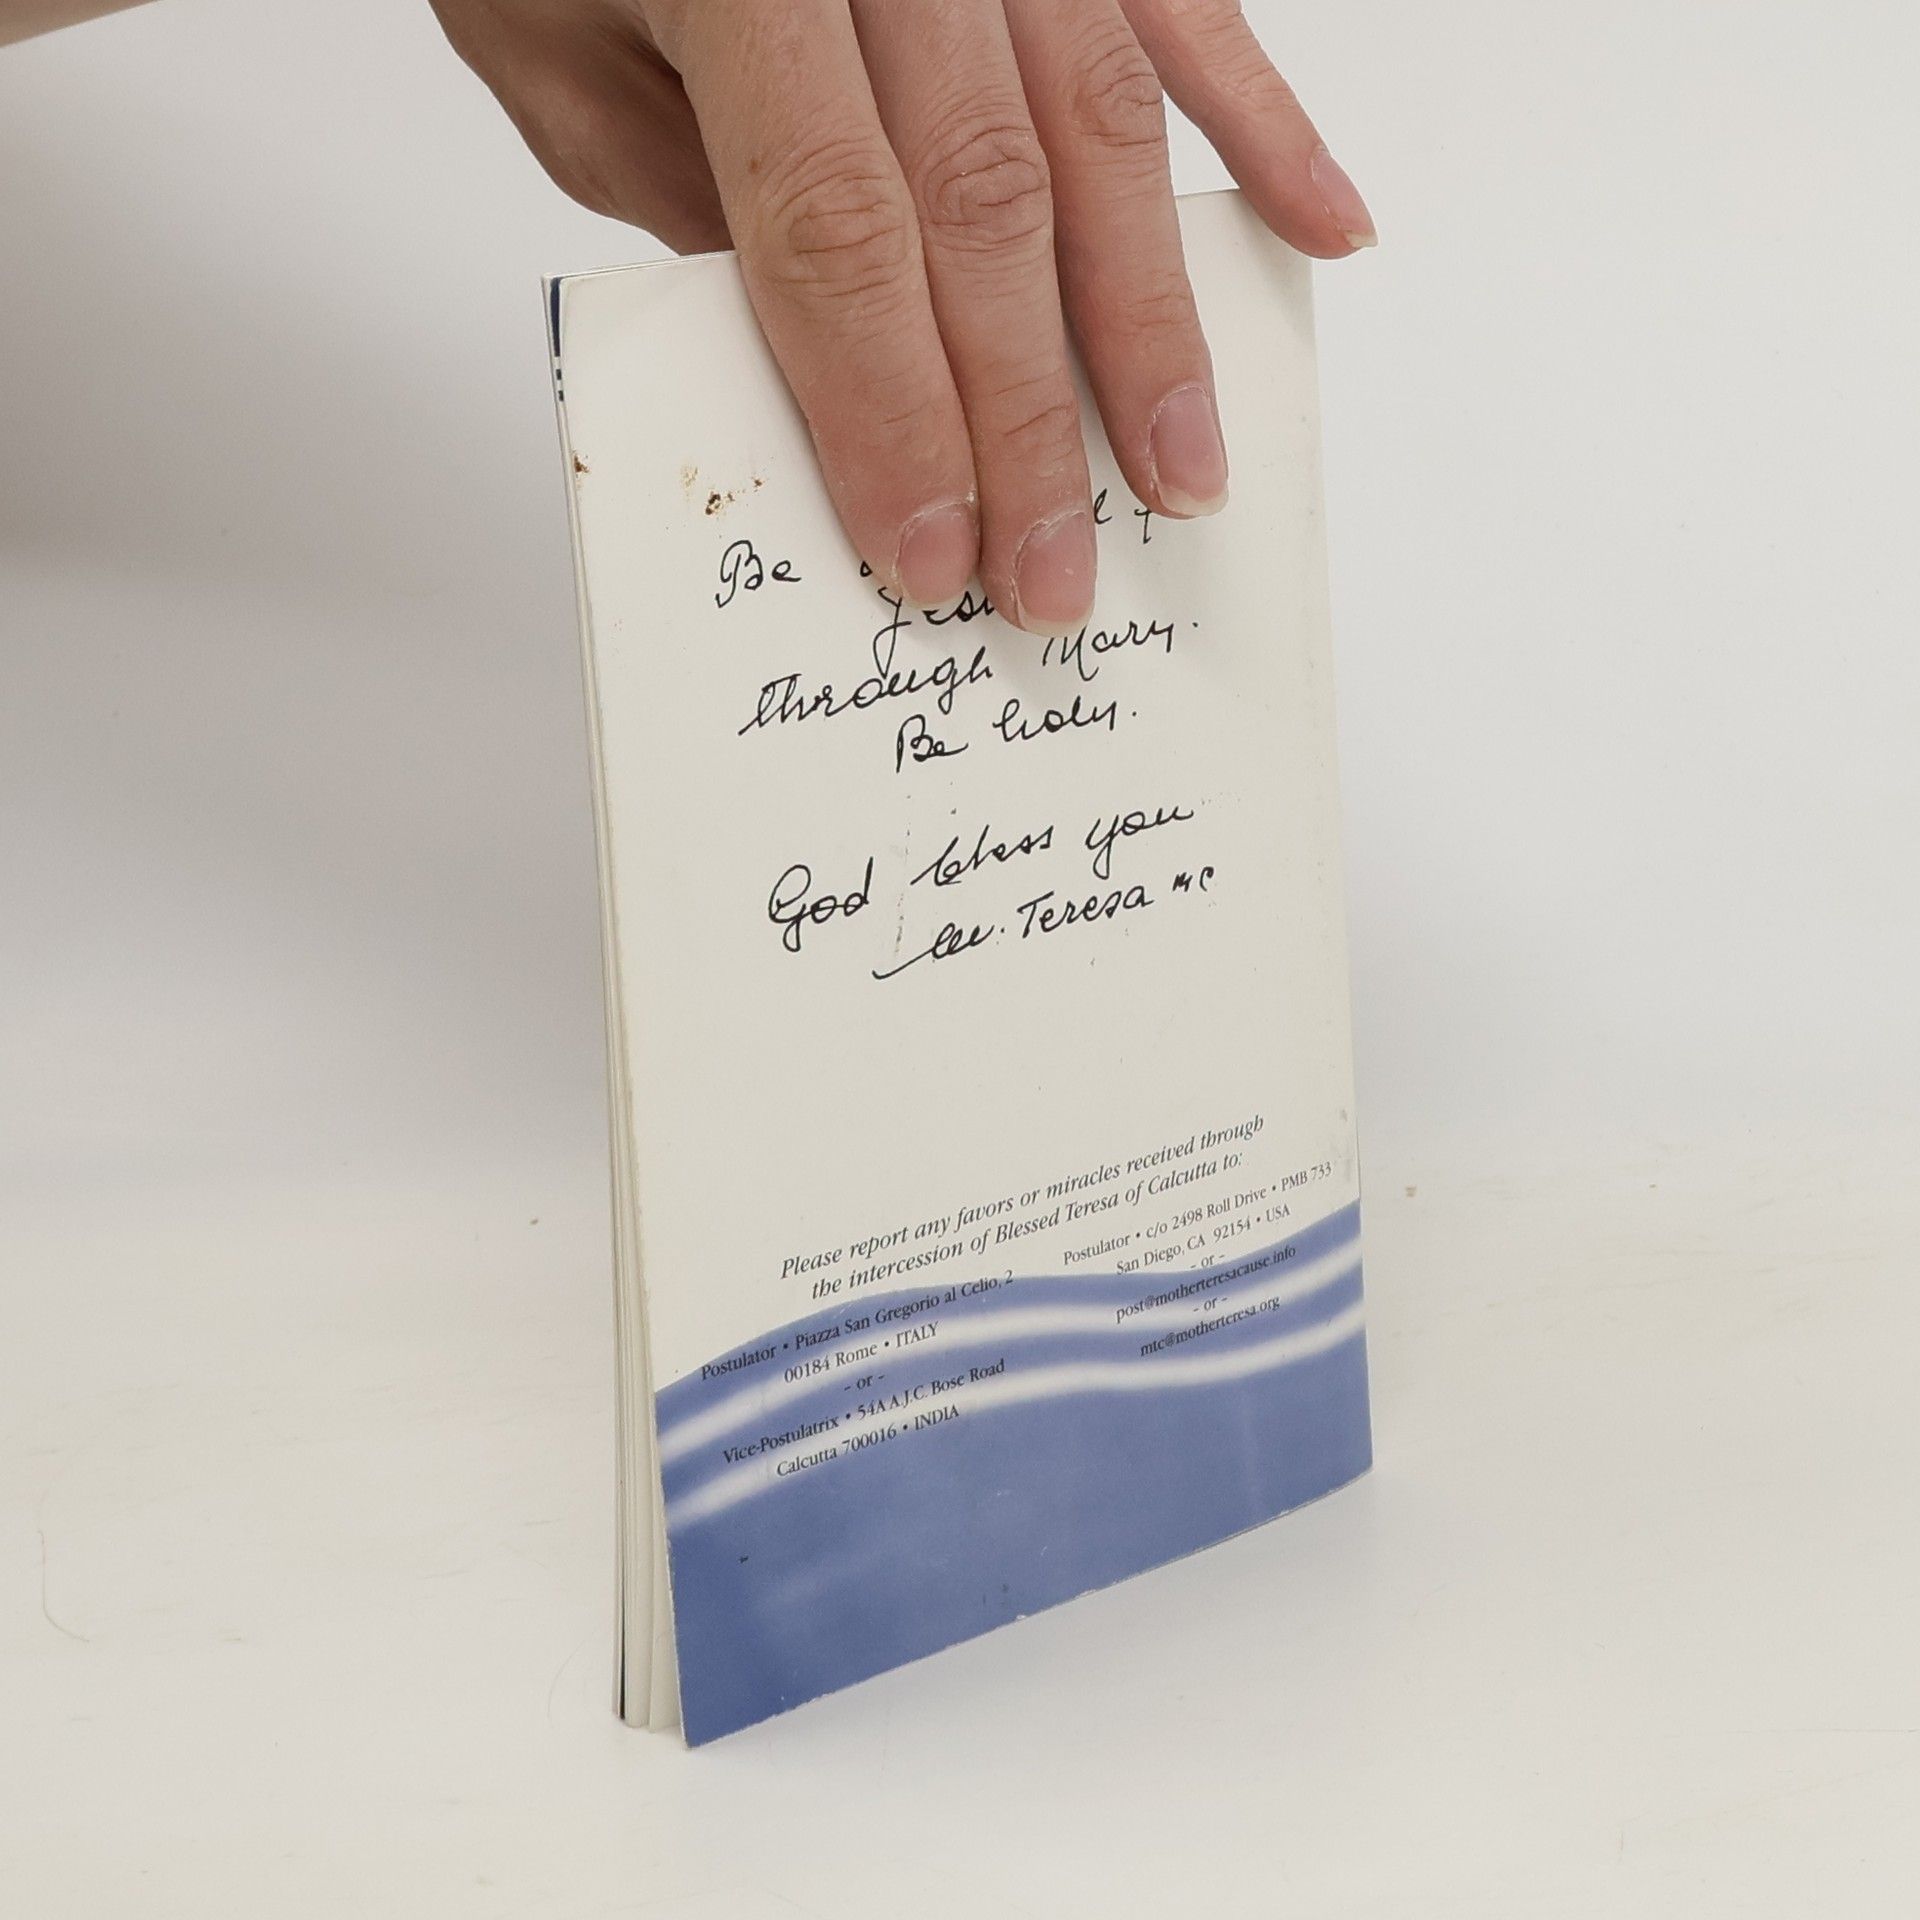 Be
through Mary.
Be holy.
God bless you
M. Teresa MC
Please report any favors or miracles received through
the intercession of Blessed Teresa of Calcutta to:
Postulator • Piazza San Gregorio al Celio, 2
00184 Rome • ITALY
- or -
Vice-Postulatrix • 54A A.J.C. Bose Road
Calcutta 700016 • INDIA
Postulator • c/o 2498 Roll Drive • PMB 733
San Diego, CA 92154 • USA
- or -
post@motherteresacause.info
- or -
mtc@motherteresa.org